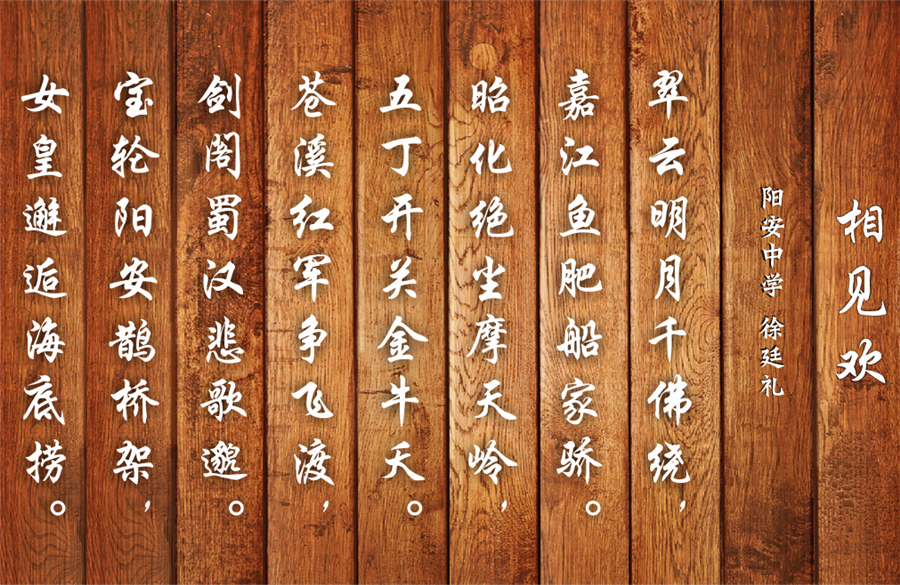 相见欢
阳安中学 徐廷礼
翠云明月千佛绕，
嘉江鱼肥船家骄。
昭化绝尘摩天岭，
五丁开关金牛夭。
苍溪红军争飞渡，
剑阁蜀汉悲歌邈。
宝轮阳安鹊桥架，
女皇邂逅海底捞。